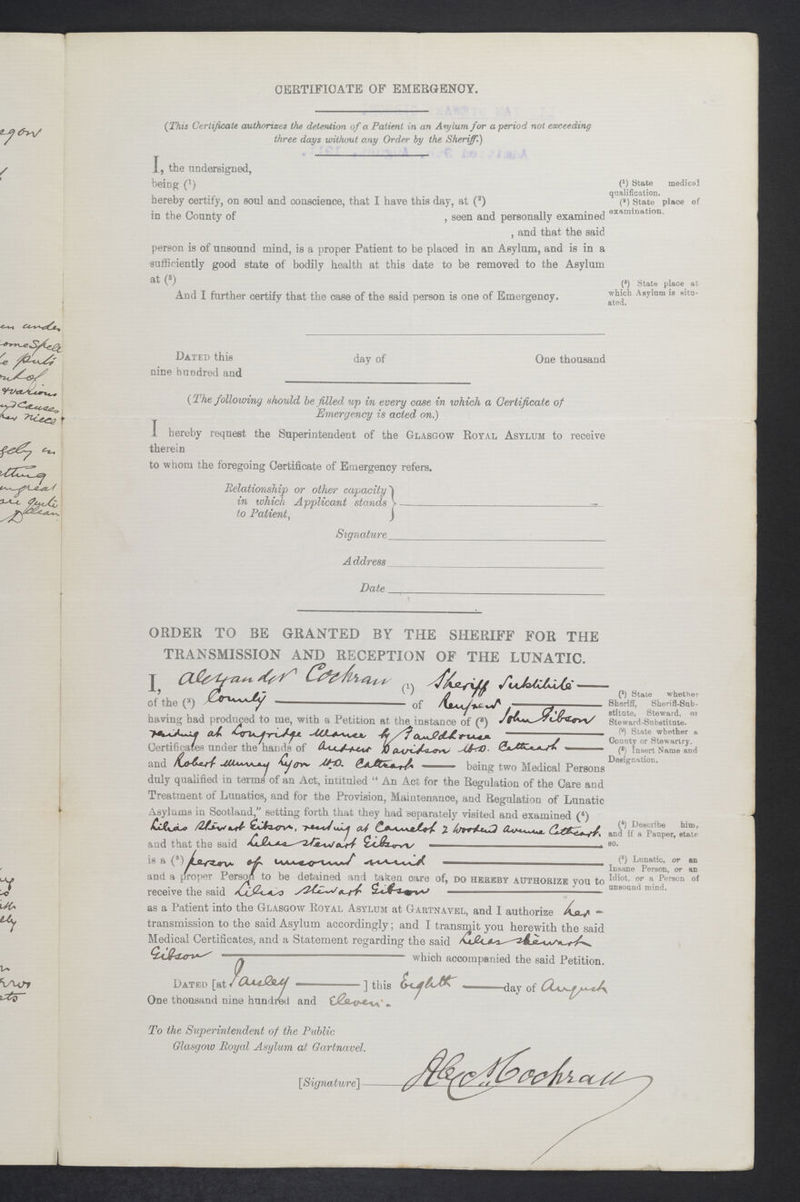 CERTIFICATE OF EMERGENCY.
(This Certificate authorizes the detention of a Patient in an Asylum for a period not exceeding
three days without any Order by the Sheriff.)
I, the undersigned,
being (¹)
hereby certify, on soul and conscience, that I have this day, at (²)
in the County of , seen and personally examined
, and that the said
person is of unsound mind, is a proper Patient to be placed in an Asylum, and is in a
sufficiently good state of bodily health at this date to be removed to the Asylum
at (³)
And I further certify that the case of the said person is one of Emergency.
(¹) State medical
qualification.
(²) State place of
examination.
(³) State place at
which Asylum is situ-
ated.
DATED this day of One thousand
nine hundred and
(The following should be filled up in every case in which a Certificate of
Emergency is acted on.)
I hereby request the Superintendent of the GLASGOW ROYAL ASYLUM to receive
therein
to whom the foregoing Certificate of Emergency refers.
Relationship or other capacity
in which Applicant stands
to Patient,
Signature
Address
Date
ORDER TO BE GRANTED BY THE SHERIFF FOR THE
TRANSMISSION AND RECEPTION OF THE LUNATIC.
I, Alexander Cochran (¹) Sheriff Substitute
of the (²) County of Renfrew
having had produced to me, with a Petition at the instance of (³) John Gibson
residing at Longridge Manse by Fauldhouse
Certificates under the hands of Andrew Davidson M.D. Cathcart
and Robert Murray Lyon M.D. Cathcart being two Medical Persons
duly qualified in terms of an Act, intituled "An Act for the Regulation of the Care and
Treatment of Lunatics, and for the Provision, Maintenance, and Regulation of Lunatic
Asylums in Scotland," setting forth that they had separately visited and examined (⁴)
Lilias Stewart Gibson, residing at Camelot 2 Woodend Avenue Cathcart,
and that the said Lilias Stewart Gibson
is a (⁵) person of unsound mind
and a proper Person to be detained and taken care of, DO HEREBY AUTHORIZE you to
receive the said Lilias Stewart Gibson
as a Patient into the GLASGOW ROYAL ASYLUM at GARTNAVEL, and I authorize her
transmission to the said Asylum accordingly; and I transmit you herewith the said
Medical Certificates, and a Statement regarding the said Lilias Stewart
Gibson which accompanied the said Petition.
DATED [at Paisley ] this Eighth day of August
One thousand nine hundred and Eleven.
(¹) State whether
Sheriff, Sheriff-Sub-
stitute, Steward, or
Steward-Substitute.
(²) State whether a
County or Stewartry.
(³) Insert Name and
Designation.
(⁴) Describe him,
and if a Pauper, state
so.
(⁵) Lunatic, or an
Insane Person, or an
Idiot, or a Person of
unsound mind.
To the Superintendent of the Public
Glasgow Royal Asylum at Gartnavel.
[Signature] Alex Cochran